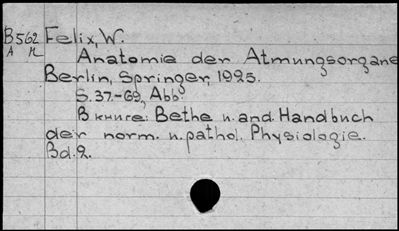 B562 Felix, W.
А К
Anatomie der Atmungsorgane
Berlin, Springer, 1925.
S. 37.-69, Abb.
В книге: Bethe u. and. Handbuch
der norm. u. pathol. Physiologie.
Bd. 2.